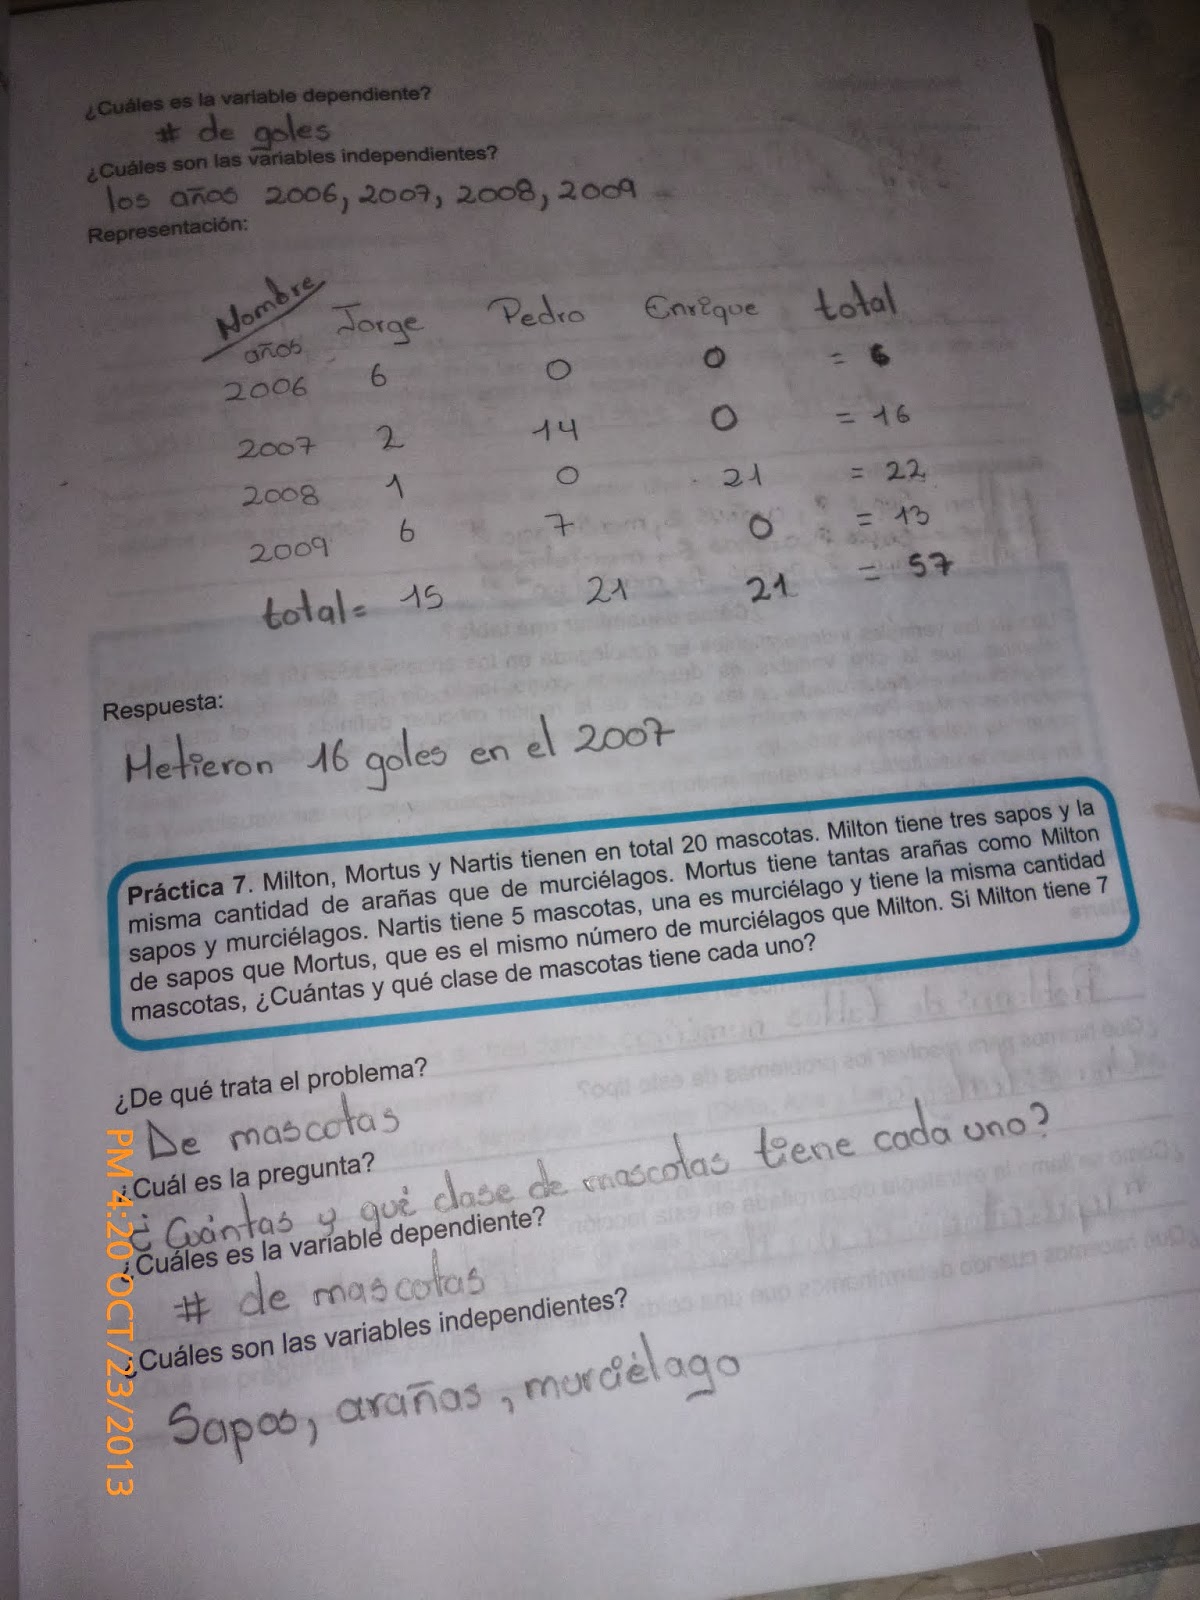 ¿Cuáles es la variable dependiente?
# de goles
¿Cuáles son las variables independientes?
los años 2006, 2007, 2008, 2009
Representación:
Nombre Jorge Pedro Enrique total
años
2006 6 0 0 = 6
2007 2 14 0 = 16
2008 1 0 21 = 22
2009 6 7 0 = 13
total= 15 21 21 = 57
Respuesta:
Metieron 16 goles en el 2007
Práctica 7. Milton, Mortus y Nartis tienen en total 20 mascotas. Milton tiene tres sapos y la
misma cantidad de arañas que de murciélagos. Mortus tiene tantas arañas como Milton
sapos y murciélagos. Nartis tiene 5 mascotas, una es murciélago y tiene la misma cantidad
de sapos que Mortus, que es el mismo número de murciélagos que Milton. Si Milton tiene 7
mascotas, ¿Cuántas y qué clase de mascotas tiene cada uno?
¿De qué trata el problema?
De mascotas
¿Cuál es la pregunta?
¿Cuántas y qué clase de mascotas tiene cada uno?
¿Cuáles es la variable dependiente?
# de mascotas
¿Cuáles son las variables independientes?
Sapos, arañas, murciélago
PM 4:20 OCT/23/2013